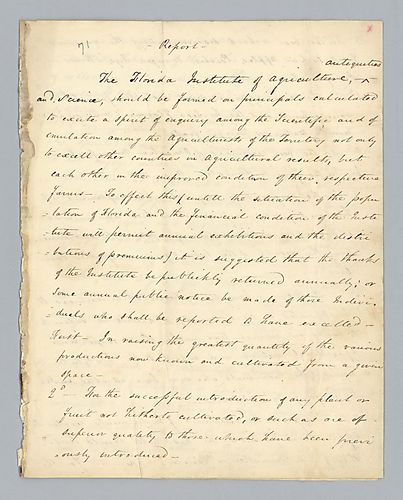 71
- Report -
antiquities
The Florida Institute of Agriculture, ^
and Science, should be formed on principals calculated
to excite a spirit of enquiry among the Scientific and of
emulation among the Agriculturists of the Territory not only
to excell other countries in Agricultural results, but
each other in the improved condition of their respective
farms - To effect this (untill the situation of the popu
lation of Florida and the financial condition of the Insti
tute will permit annual exhibitions and the distri
butions of premiums) it is suggested that the thanks
of the Institute be publickly returned annually; or
some annual public notice be made of those Indivi
duels who shall be reported to have excelled -
First - In raising the greatest quantity of the various
productions now known and cultivated from a given
space -
2d For the successful introduction of any plant or
fruit not hitherto cultivated, or such as are of
superior quality to those which have been previ
ously introduced -